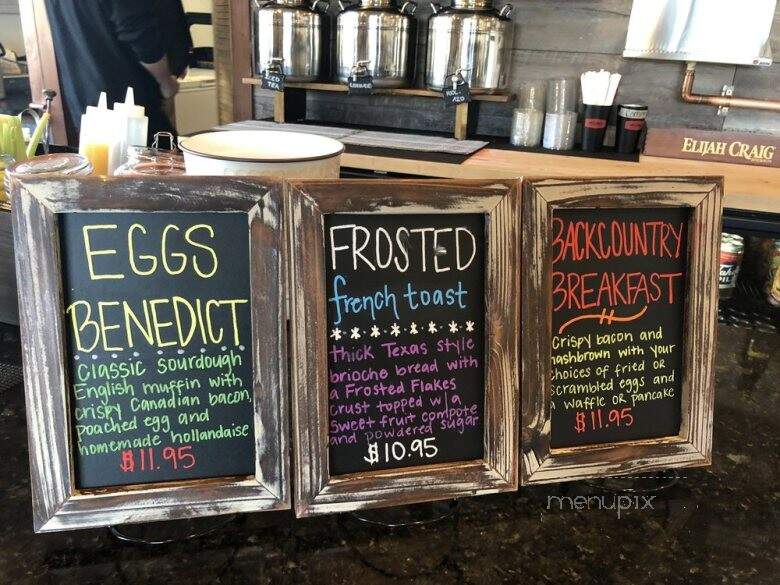 EGGS
BENEDICT
classic sourdough
English muffin with
crispy Canadian bacon,
poached egg and
homemade hollandaise
$11.95
FROSTED
french toast
thick Texas style
brioche bread with
a Frosted Flakes
crust topped w/ a
sweet fruit compote
and powdered sugar
$10.95
BACKCOUNTRY
BREAKFAST
crispy bacon and
hashbrown with your
choices of fried OR
scrambled eggs and
a waffle OR pancake
$11.95
ELIJAH CRAIG
menupix